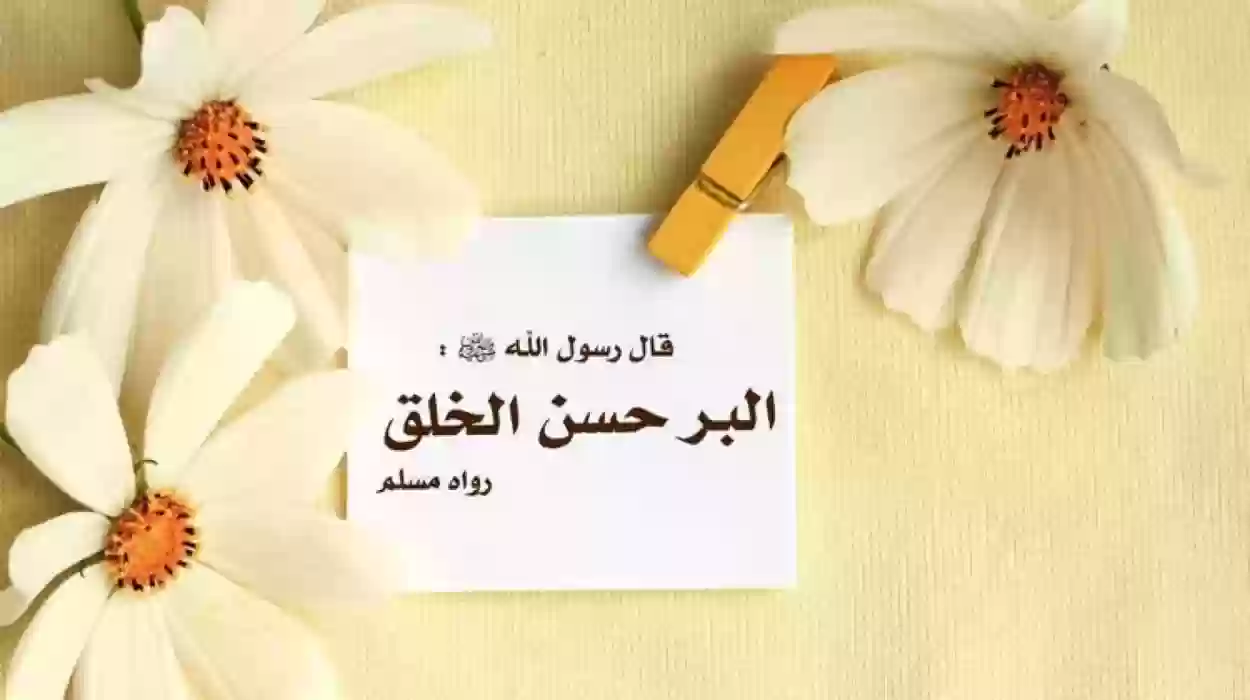 قال رسول الله ﷺ :
البر حسن الخلق
رواه مسلم